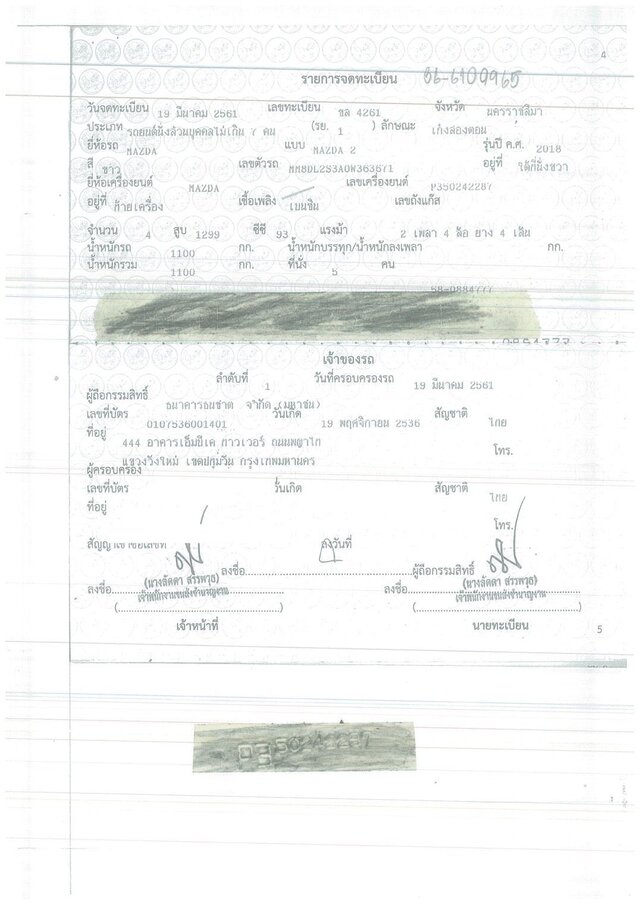 4
รายการจดทะเบียน 86-6100965
วันจดทะเบียน 19 มีนาคม 2561 เลขทะเบียน ขล 4261 จังหวัด นครราชสีมา
ประเภท รถยนต์นั่งส่วนบุคคลไม่เกิน 7 คน (รย. 1 ) ลักษณะ เก๋งสองตอน
ยี่ห้อรถ MAZDA แบบ MAZDA 2 รุ่นปี ค.ศ. 2018
สี ขาว เลขตัวรถ MM8DL2S3A0W363671 อยู่ที่ ใต้ที่นั่งขวา
ยี่ห้อเครื่องยนต์ MAZDA เลขเครื่องยนต์ P350242287
อยู่ที่ ท้ายเครื่อง เชื้อเพลิง เบนซิน เลขถังแก๊ส
จำนวน 4 สูบ 1299 ซีซี 93 แรงม้า 2 เพลา 4 ล้อ ยาง 4 เส้น
น้ำหนักรถ 1100 กก. น้ำหนักบรรทุก/น้ำหนักลงเพลา กก.
น้ำหนักรวม 1100 กก. ที่นั่ง 5 คน
เจ้าของรถ
ลำดับที่ 1 วันที่ครอบครองรถ 19 มีนาคม 2561
ผู้ถือกรรมสิทธิ์ ธนาคารธนชาต จำกัด (มหาชน)
เลขที่บัตร 0107536001401 วันเกิด 19 พฤศจิกายน 2536 สัญชาติ ไทย
ที่อยู่ 444 อาคารเอ็มบีเค ทาวเวอร์ ถนนพญาไท โทร.
แขวงวังใหม่ เขตปทุมวัน กรุงเทพมหานคร
ผู้ครอบครอง
เลขที่บัตร วันเกิด สัญชาติ ไทย
ที่อยู่
โทร.
สัญญาเช่าซื้อเลขที่ ลงวันที่
ลงชื่อ ผู้ถือกรรมสิทธิ์
(นางลัดดา สรรพวุธ) (นางลัดดา สรรพวุธ)
ลงชื่อ เจ้าพนักงานขนส่งชำนาญงาน ลงชื่อ เจ้าพนักงานขนส่งชำนาญงาน
( ) ( )
เจ้าหน้าที่ นายทะเบียน
5